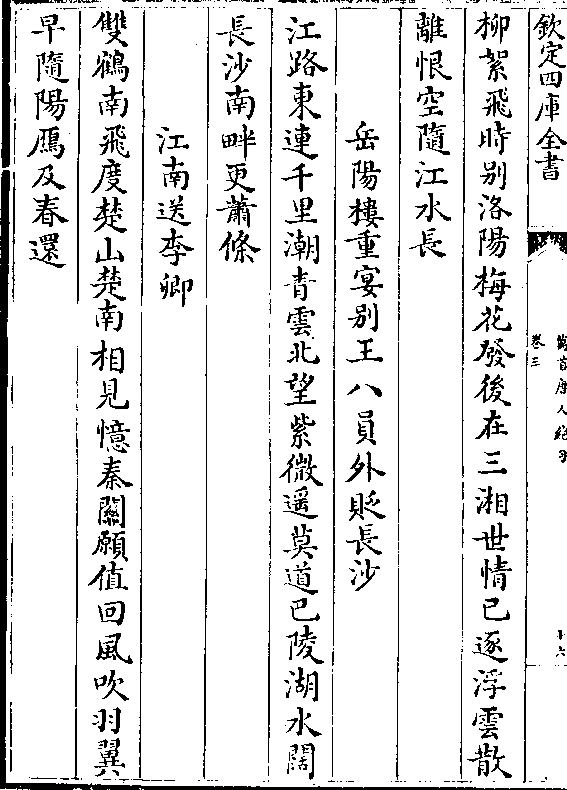 欽定四庫全書
萬首唐人絶句
卷三
十六
柳絮飛時别洛陽梅花發後在三湘世情已逐浮雲散
離恨空隨江水長
岳陽樓重宴别王八員外貶長沙
江路東連千里潮青雲北望紫微遥莫道巴陵湖水闊
長沙南畔更蕭條
江南送李卿
雙鶴南飛度楚山楚南相見憶秦關願值回風吹羽翼
早隨陽鴈及春還